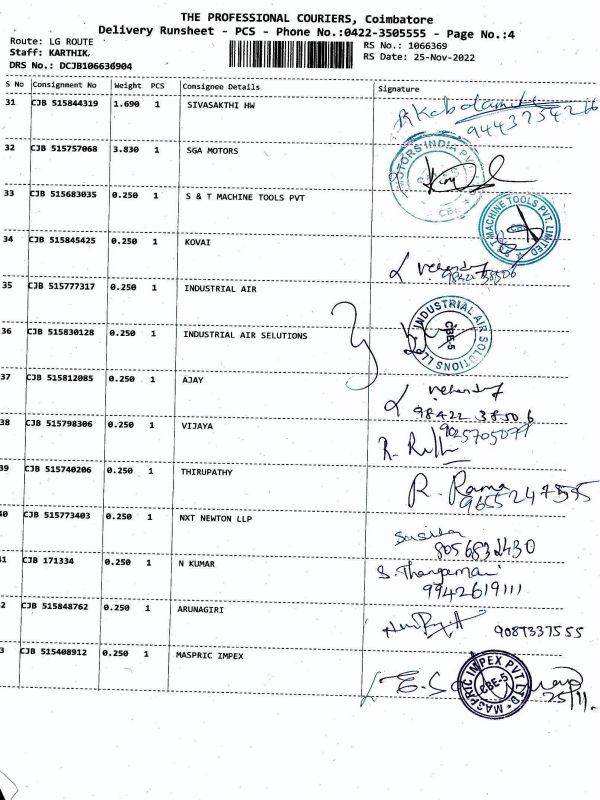 THE PROFESSIONAL COURIERS, Coimbatore
Delivery Runsheet - PCS - Phone No.:0422-3505555 - Page No.:4
Route: LG ROUTE
RS No.: 1066369
Staff: KARTHIK.
RS Date: 25-Nov-2022
DRS No.: DCJB106636904
S No Consignment No Weight PCS Consignee Details Signature
31 CJB 515844319 1.690 1 SIVASAKTHI HW
32 CJB 515757068 3.830 1 SGA MOTORS
MOTORS INDIA PVT
CBE
33 CJB 515683035 0.250 1 S & T MACHINE TOOLS PVT
S & T MACHINE TOOLS PVT. LIMITED
CBE
34 CJB 515845425 0.250 1 KOVAI
35 CJB 515777317 0.250 1 INDUSTRIAL AIR
36 CJB 515830128 0.250 1 INDUSTRIAL AIR SELUTIONS
INDUSTRIAL AIR SOLUTIONS LLP
CBE-5
37 CJB 515812085 0.250 1 AJAY
98422 38506
38 CJB 515798306 0.250 1 VIJAYA
9025705077
39 CJB 515740206 0.250 1 THIRUPATHY
R. Rama
9655247595
40 CJB 515773403 0.250 1 NXT NEWTON LLP
8056832430
41 CJB 171334 0.250 1 N KUMAR
S. Thangamani
9942619111
42 CJB 515848762 0.250 1 ARUNAGIRI
9087337555
43 CJB 515408912 0.250 1 MASPRIC IMPEX
MASPRIC IMPEX PVT LTD
CBE-5
25/11.